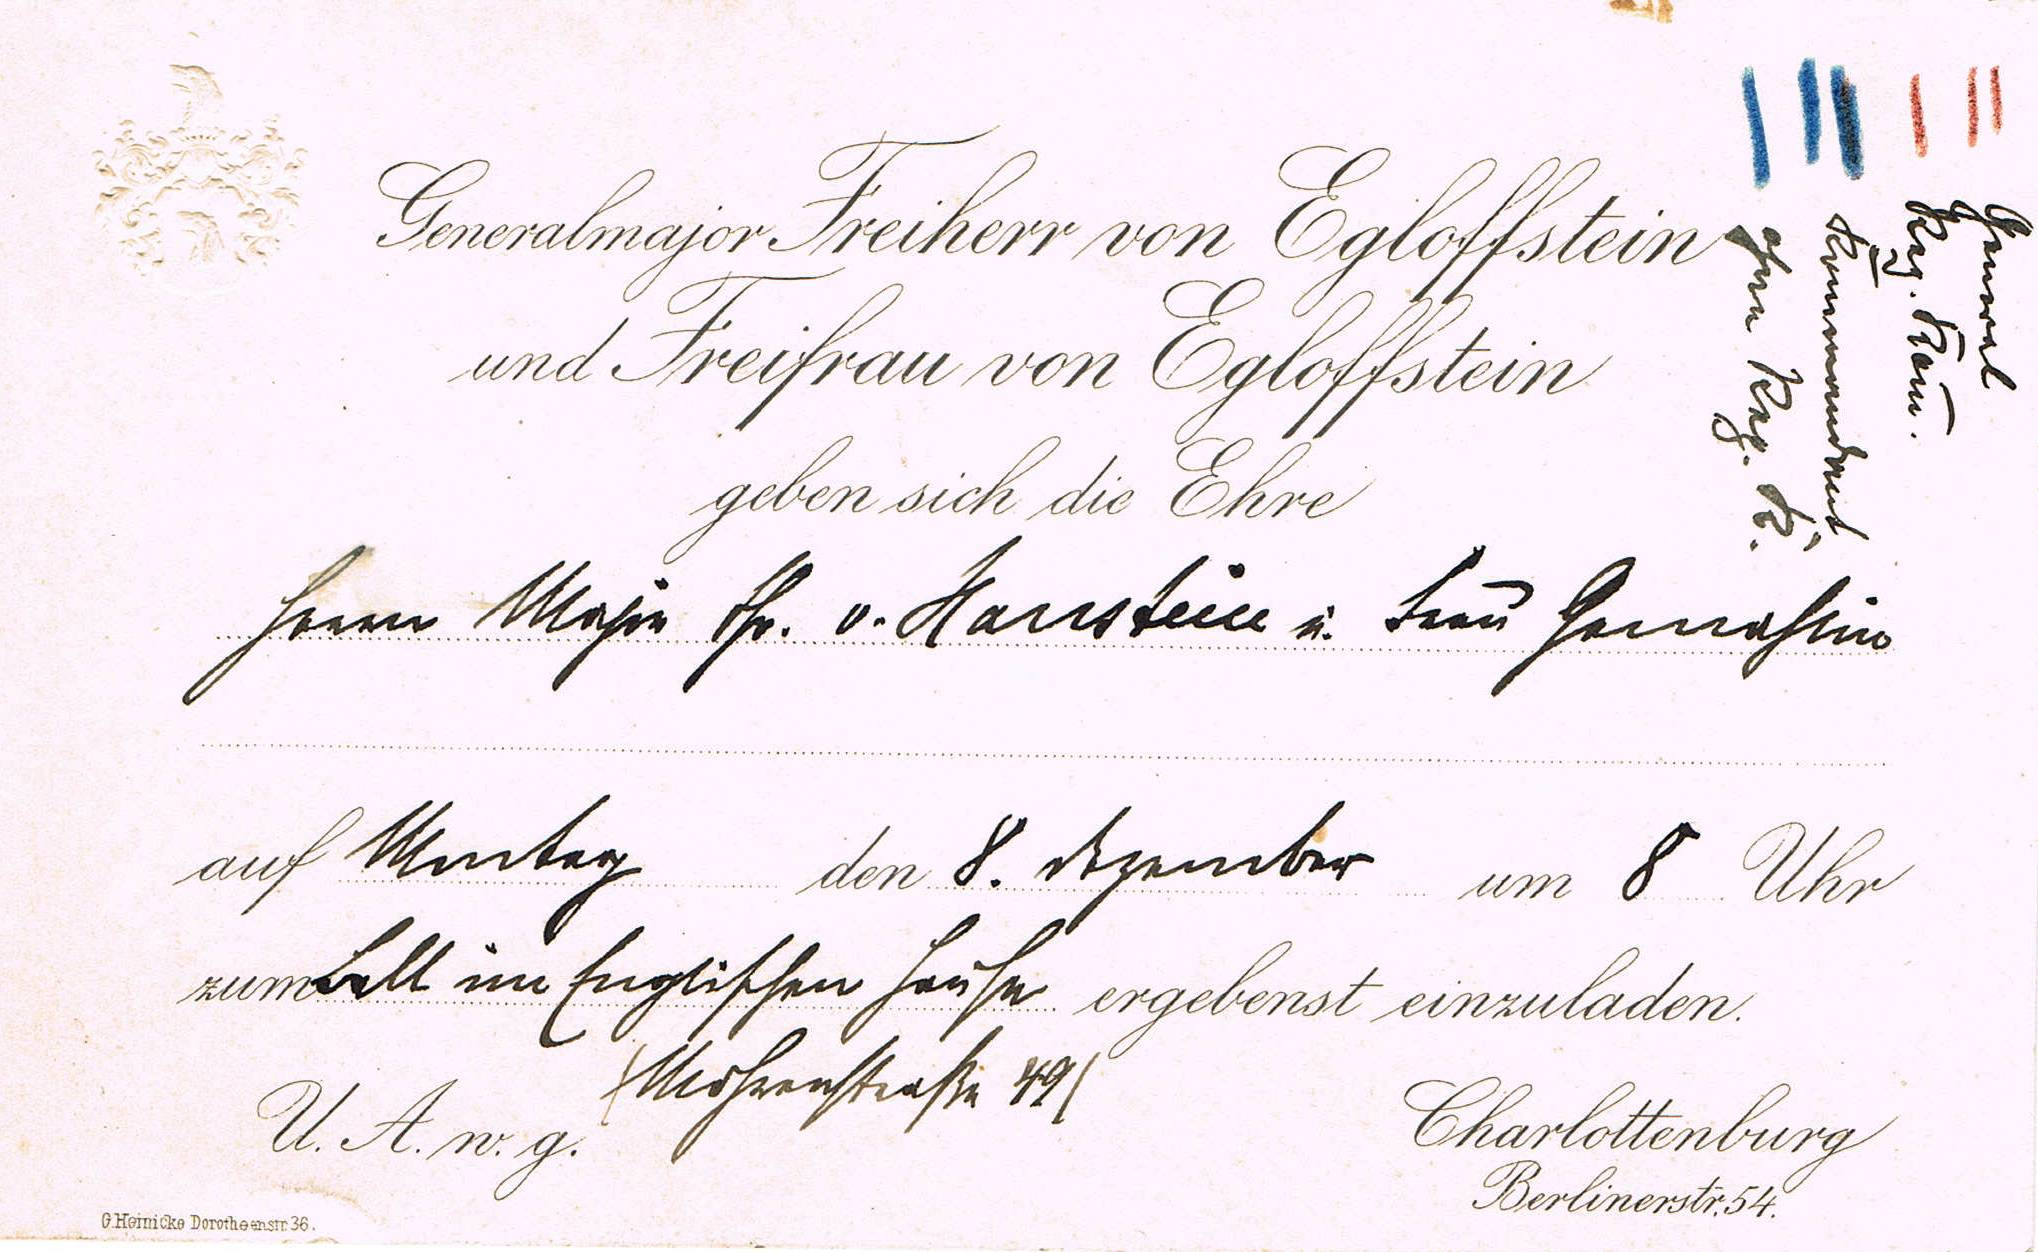 Generalmajor Freiherr von Egloffstein
und Freifrau von Egloffstein
geben sich die Ehre
Herrn Major Fhr. v. Hanstein u. Frau Gemahlin
auf Montag den 8. Dezember um 8 Uhr
zum Ball im Englischen Hause ergebenst einzuladen.
(Mohrenstraße 49)
U. A. w. g.
Charlottenburg
Berlinerstr. 54.
G. Heinicke Dorotheenstr. 36.
General
Reg. Kom.
Kommandeut
ohne Reg. K.